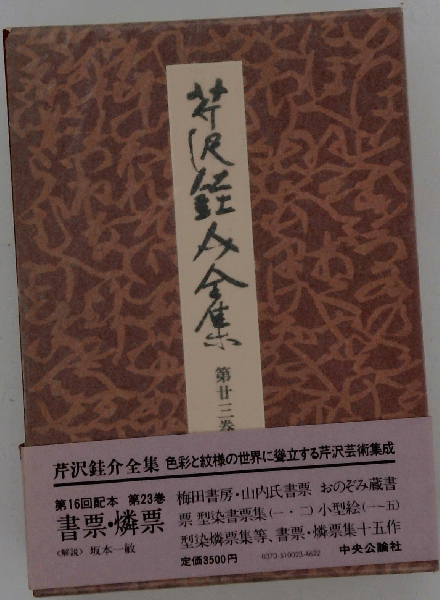 芹沢銈介全集
第廿三巻
芹沢銈介全集 色彩と紋様の世界に聳立する芹沢芸術集成
第16回配本 第23巻
書票・燐票
〈解説〉坂本一敏
梅田書房・山内氏書票 おのぞみ蔵書
票 型染書票集(一・二)小型絵(一―五)
型染燐票集等、書票・燐票集十五作
定価3500円
中央公論社